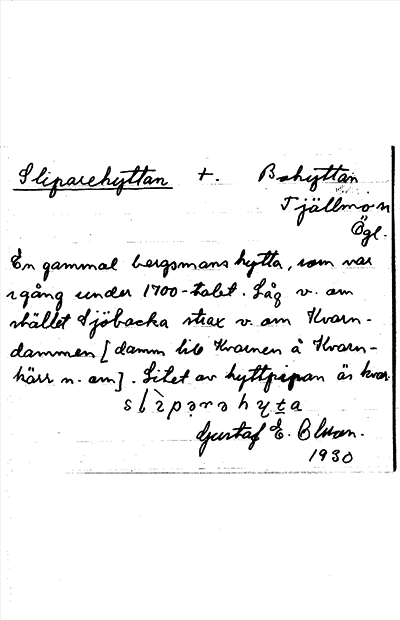 Sliparehyttan +. Bohyttan
Tjällmo sn
Ögl.
En gammal bergsmanshytta, som var
igång under 1700-talet. Låg v. om
stället Sjöbacka strax v. om Kvarn-
dammen [damm till Kvarnen å Kvarn-
kärr n. om]. Litet av hyttpipan är kvar.
slìparəhyta
Gustaf E.
1930